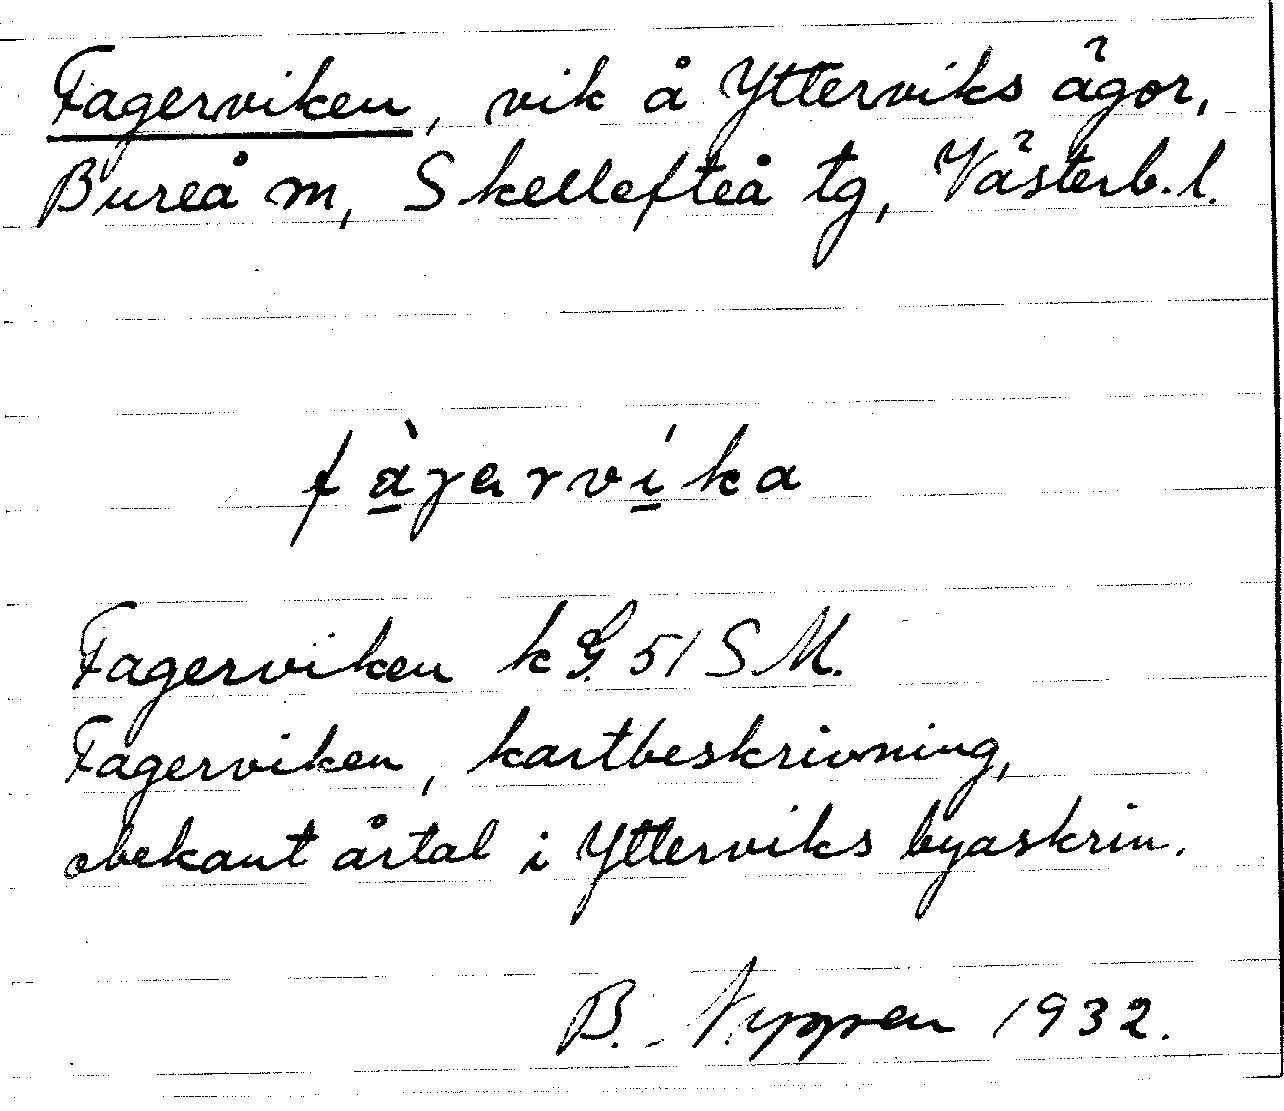 Fagerviken, vik å Ytterviks ägor,
Bureå m, Skellefteå tg, Västerb. l.
fàgarvíka
Fagerviken k G. 51 S M.
Fagerviken, kartbeskrivning,
obekant årtal i Ytterviks byaskrin.
B. Nyppen 1932.